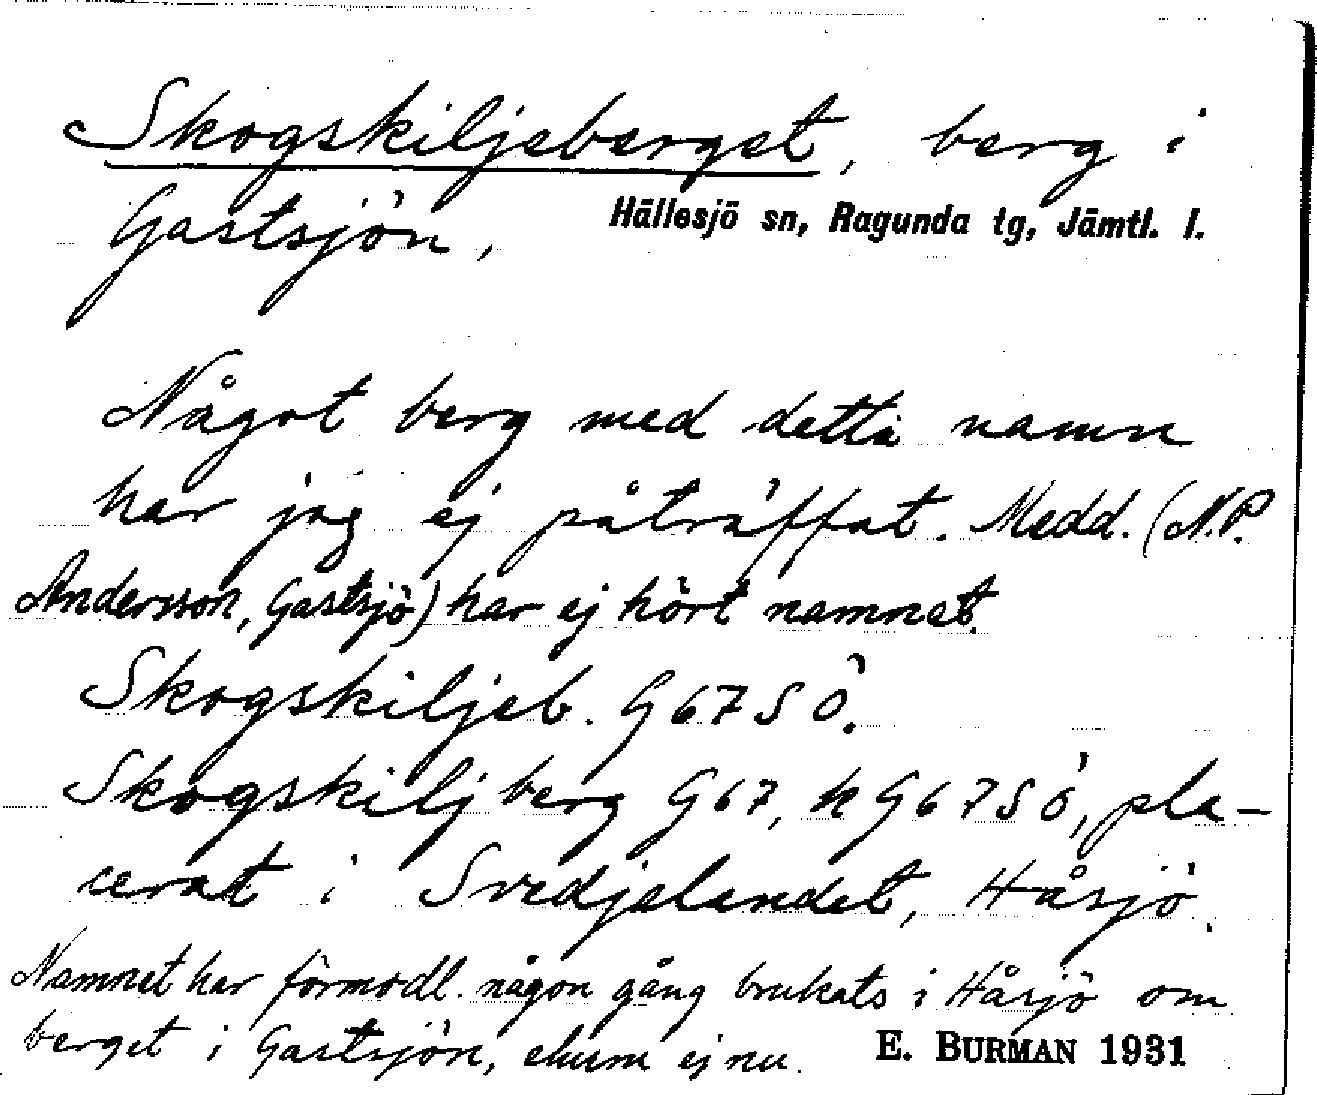 Skogskiljeberget, berg i
Gastsjön, Hällesjö sn, Ragunda tg, Jämtl. l.
Något berg med detta namn
har jag ej påträffat. Medd. (N.P.
Andersson, Gastsjö) har ej hört namnet.
Skogskiljeb. G67SÖ.
Skogskiljberg G67, k G67SÖ, pla-
cerat i Svedjelandet, Håsjö.
Namnet har förmodl. någon gång brukats i Håsjö om
berget i Gastsjön, ehuru ej nu. E. BURMAN 1931